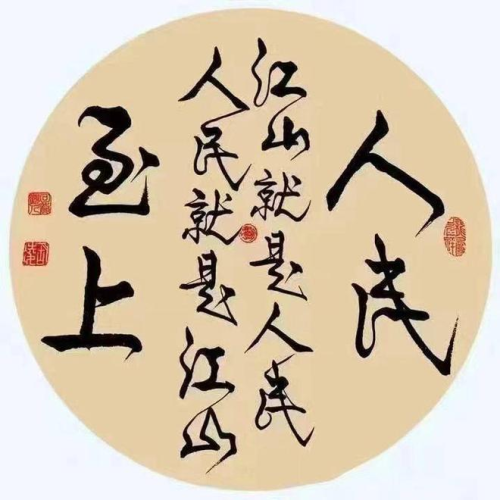 人民
江山就是人民
人民就是江山
至上